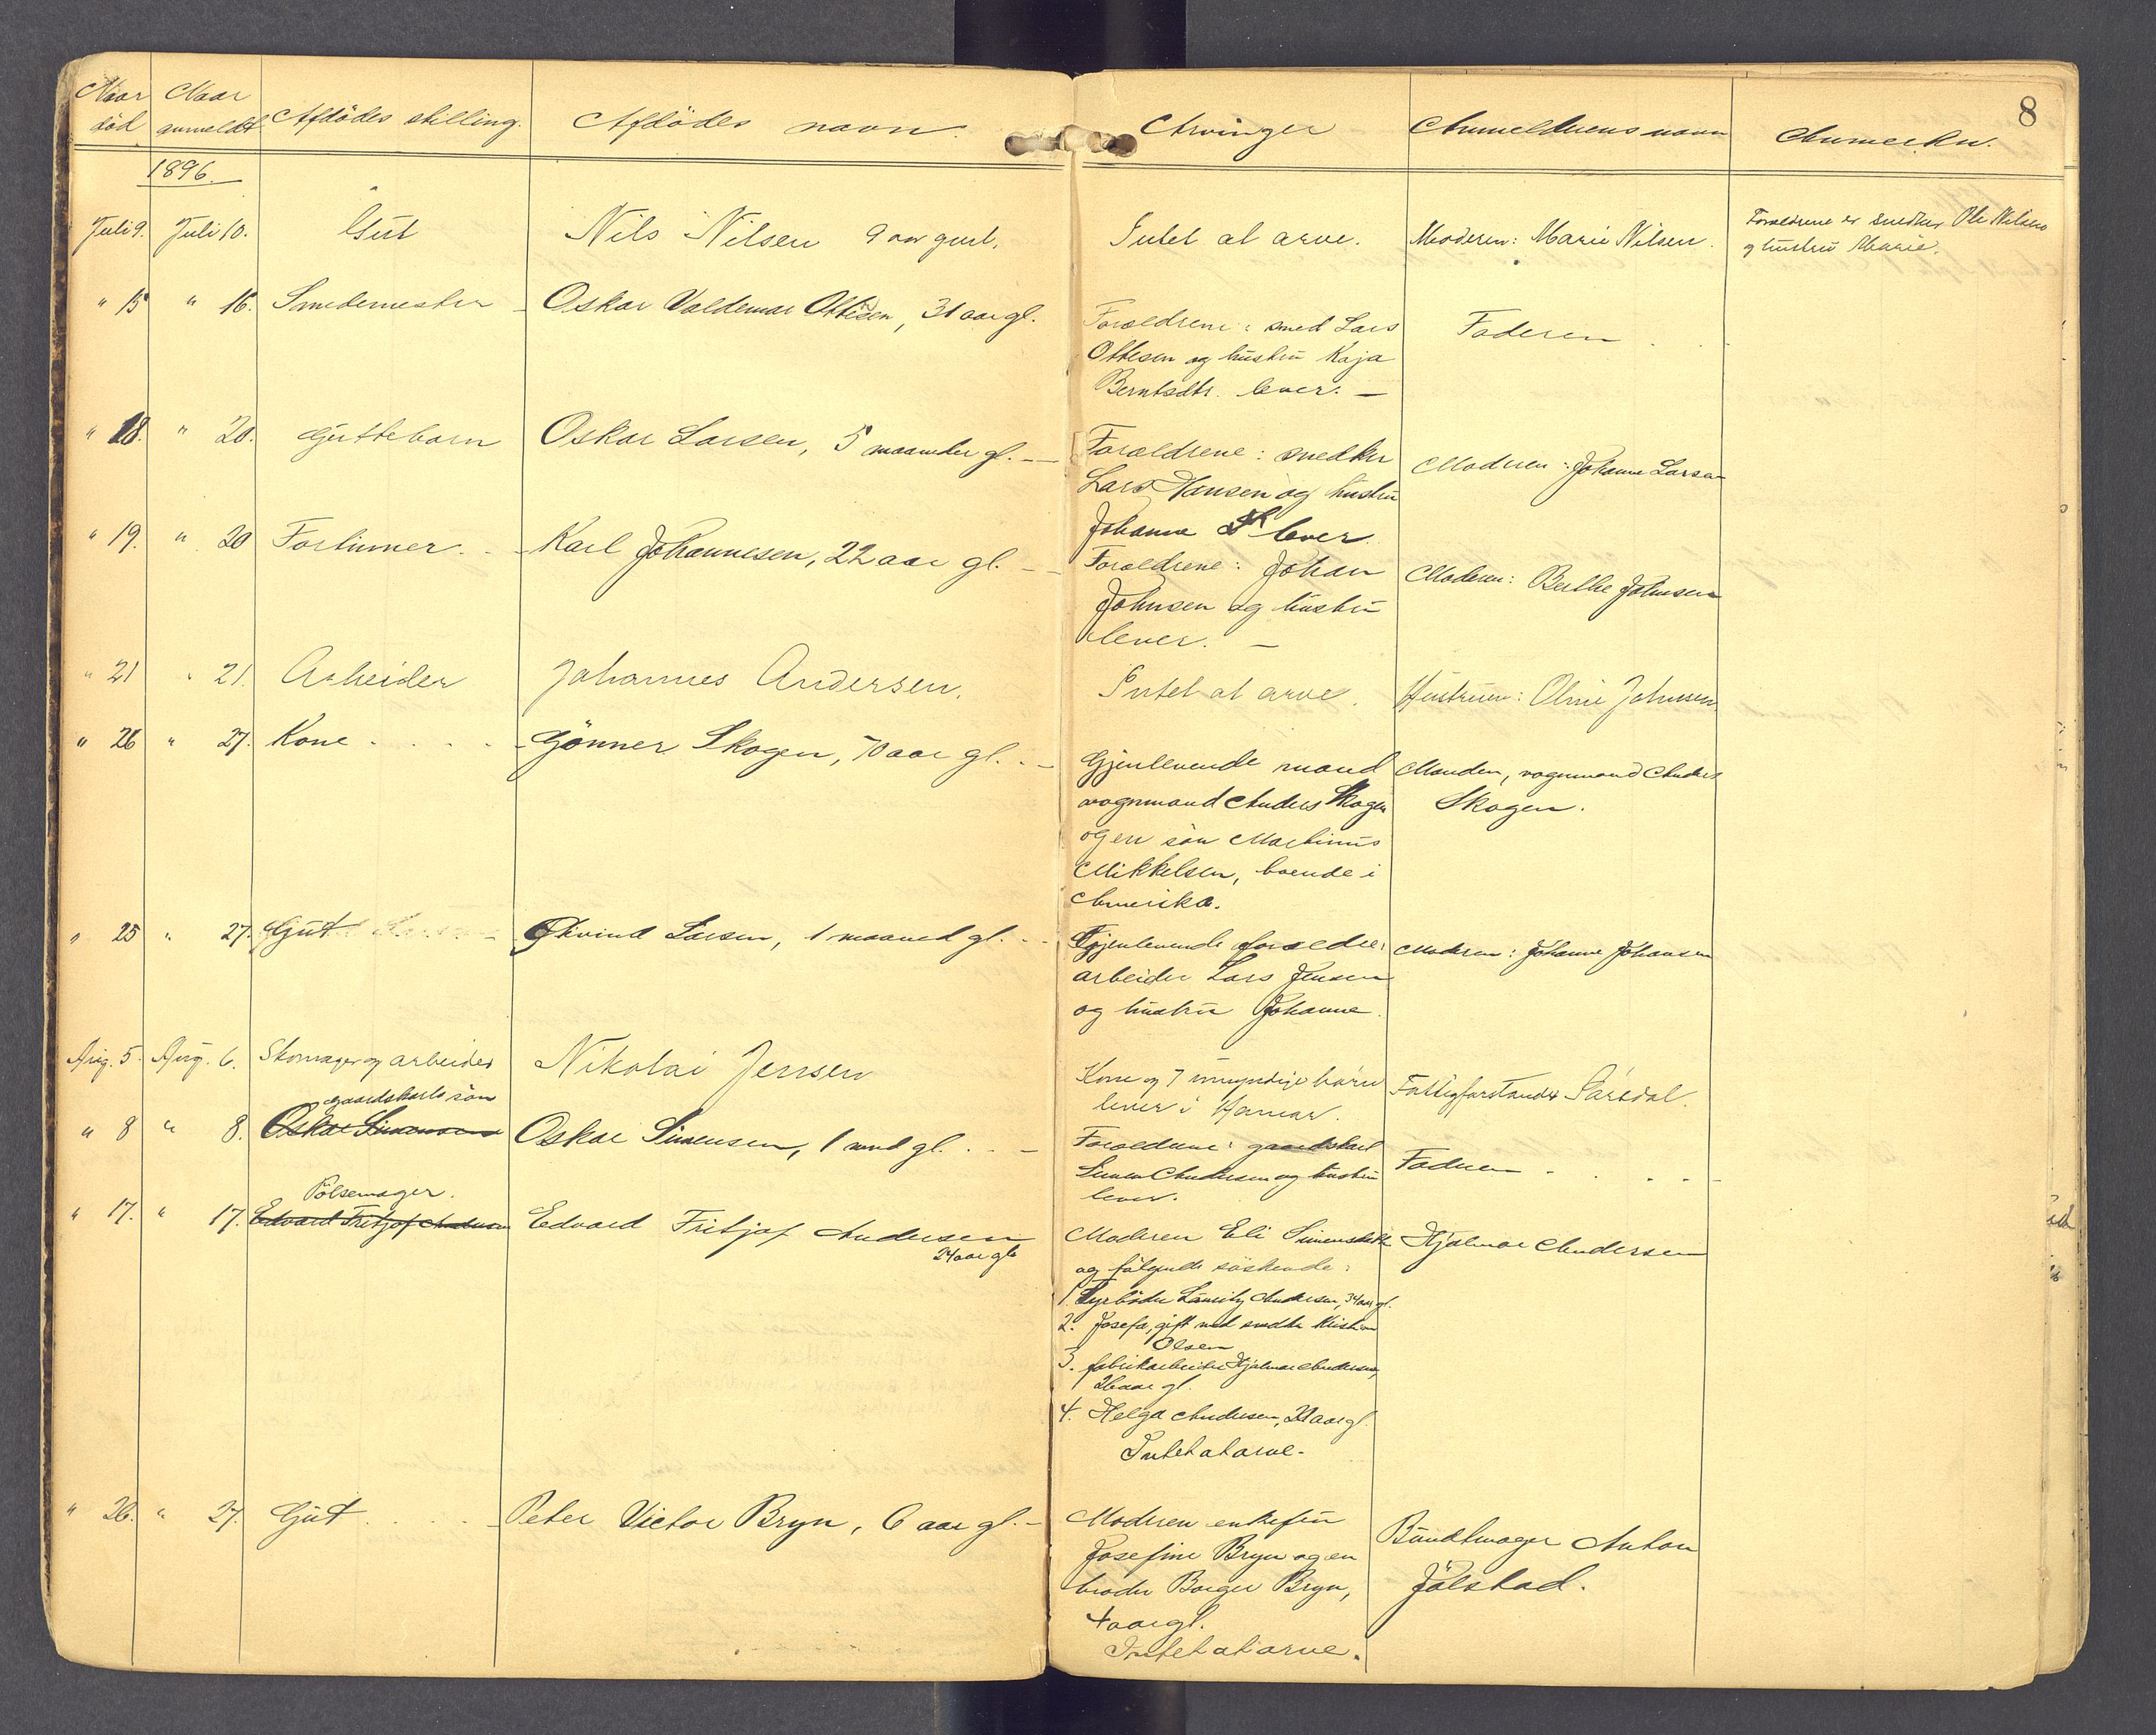 8
Naar død	Naar anmeldt	Afdödes stilling.	Afdödes navn.	Arvinger	Anmelderens navn	Anmerkn.
1896.
Juli 9.	Juli 10.	Gut	Nils Nilsen 9 aar gml.	Intet at arve.	Moderen: Marie Nilsen.	Forældrene er snedker Ole Nilsen
og hustru Marie.
" 15	" 16.	Smedemester	Oskar Valdemar Ottesen, 31 aar gl.	Forældrene: smed Lars	Faderen
Ottesen og hustru Kaja
Berntsdtr. lever. —
" 18.	" 20.	Guttebarn	Oskar Larsen, 5 maaneder gl. —	Forældrene: snedker	Moderen: Johanne Larsen
Lars Hansen og hustru
Johanne lever
" 19.	" 20	Fortinner	Karl Johannesen, 22 aar gl. —	Forældrene: Johan	Moderen: Berthe Johnsen
Johnsen og hustru
lever. —
" 21	" 21.	Arbeider	Johannes Andersen.	Intet at arve.	Hustruen: Oline Johnsen
" 26	" 27.	Kone	Gönner Skogen, 70 aar gl. —	Gjenlevende mand	Manden, vognmand Anders
vognmand Anders Skogen	Skogen.
og en sön Martinus
Mikkelsen, boende i
Amerika.
" 25	" 27.	Gut	Øivind Larsen, 1 maaned gl.	Gjenlevende forældre:	Moderen: Johanne Johansen
arbeider Lars Jensen
og hustru Johanne.
Aug. 5.	Aug. 6.	Skomager og arbeider	Nikolai Jensen	Kone og 7 umyndige børn	Fattigforstander Sarsdal.
lever i Hamar.
gaardskarls sön
" 8	" 8.	Oskar Simensen	Oskar Simensen, 1 mnd gl. —	Forældrene: gaardskarl	Faderen
Simen Andersen og hustru
lever.
Pölsemager.
" 17.	" 17.	Edvard Fritjof Andersen	Edvard Fritjof Andersen	Moderen Eli Simensdatter	Hjalmar Andersen
24 aar gl.
og fölgende söskende:
1. Fyrböder Andersen, 34 aar gl.
2. Josefa, gift med snedker Kristian
Olsen
3. fabrikarbeider Hjalmar Andersen,
26 aar gl.
4. Helga Andersen, 21 aar gl.
Intet at arve.
" 26.	" 27.	Gut	Peter Victor Bryn, 6 aar gl. —	Moderen enkefru	Bundtmager Anton
Josefine Bryn og en	Jölstad.
broder Borger Bryn,
4 aar gl.
Intet at arve.